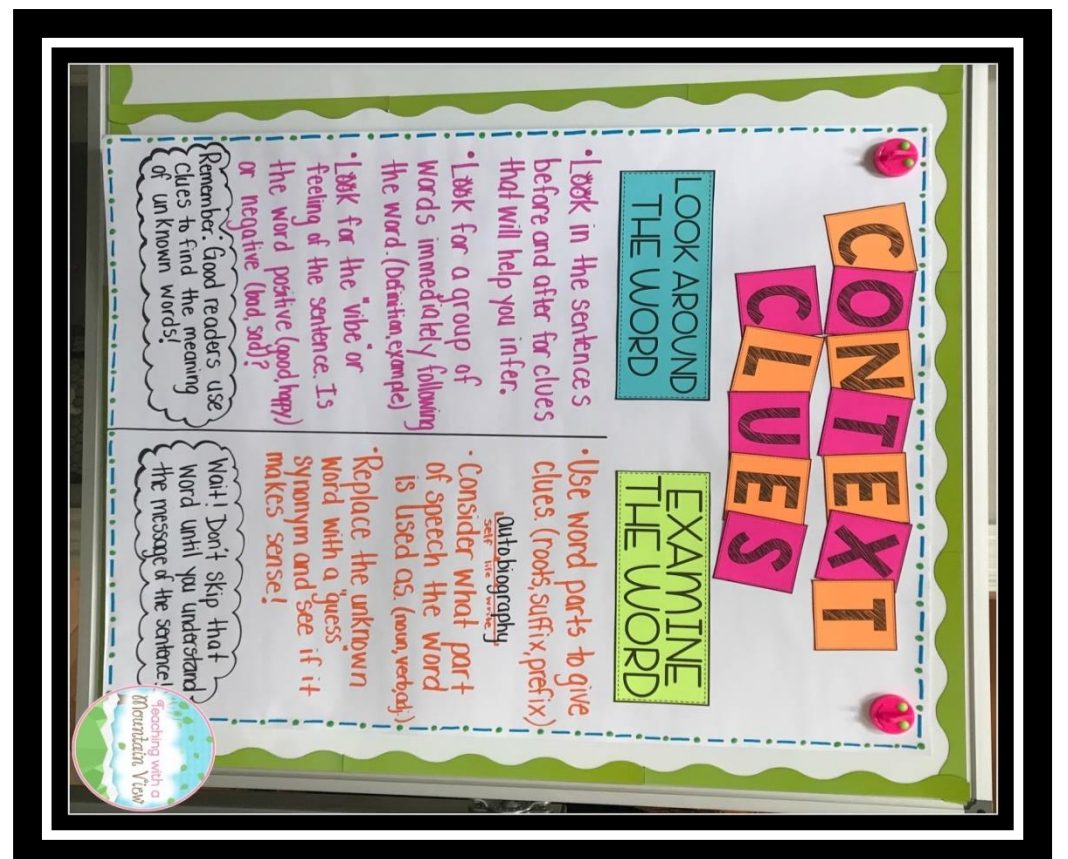 CONTEXT
CLUES
LOOK AROUND
THE WORD
•Look in the sentences
before and after for clues
that will help you infer.
•Look for a group of
words immediately following
the word. (Definition, example)
•Look for the "vibe" or
feeling of the sentence. Is
the word positive (good, happy)
or negative (bad, sad)?
Remember: Good readers use
clues to find the meaning
of unknown words!
EXAMINE
THE WORD
•Use word parts to give
clues. (roots, suffix, prefix)
autobiography
self life write
•Consider what part
of speech the word
is used as. (noun, verb, adj.)
•Replace the unknown
word with a "guess"
synonym and see if it
makes sense!
Wait! Don't skip that
word until you understand
the message of the sentence!
Teaching with a
Mountain View